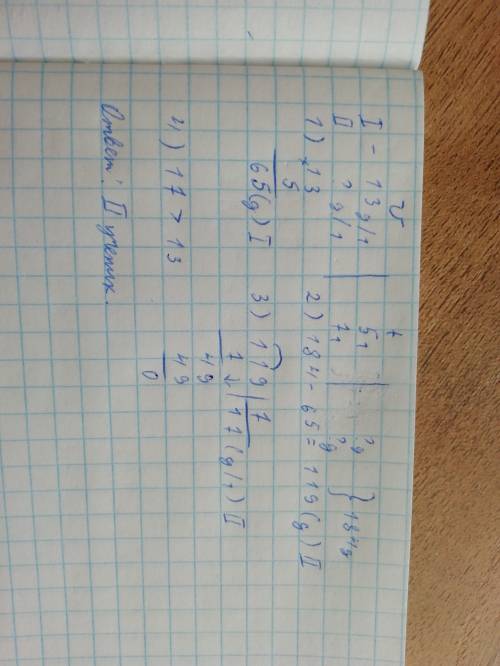 v t
I - 13 д/ч 5ч ?д } 184д
II ? д/ч 7ч ?д
1) ×13 2) 184 - 65 = 119(д) II
5
65(д) I 3) 119 | 7
7 17 (д/ч) II
49
49
0
4) 17 > 13
Ответ: II ученик.